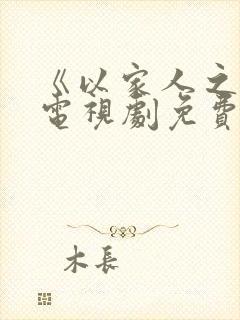 《以家人之
電視劇免費
木長